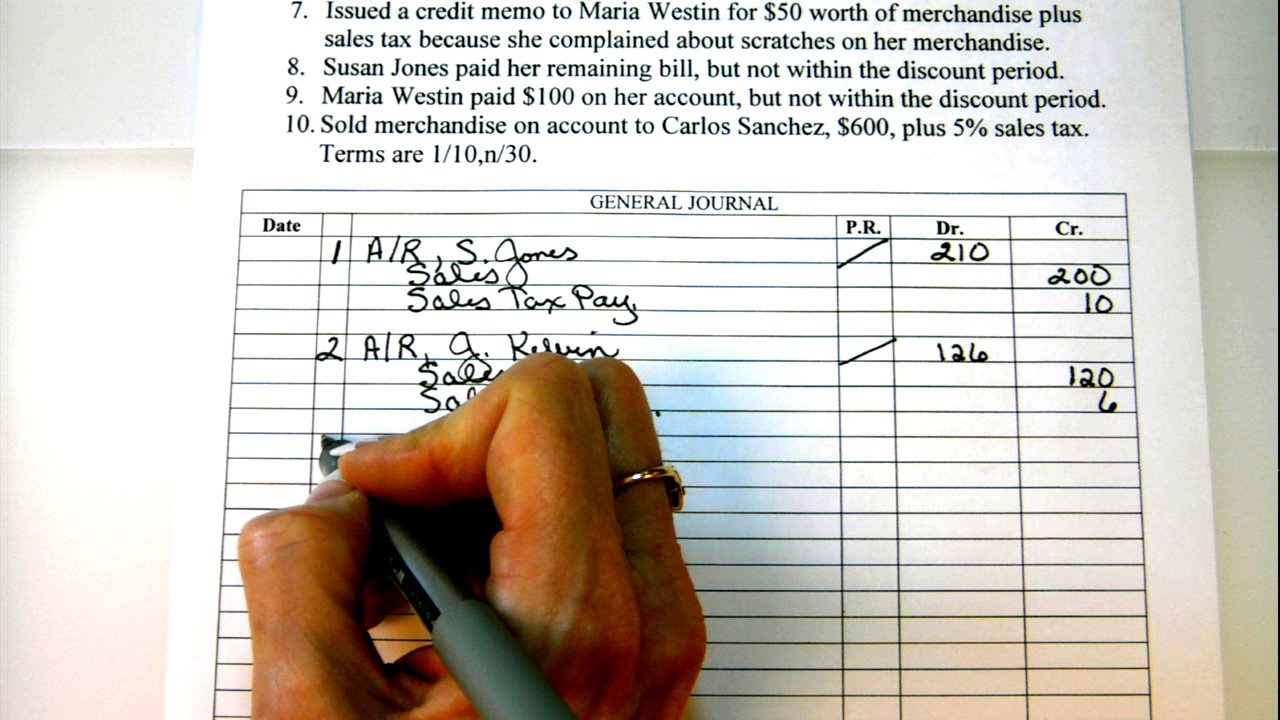 7. Issued a credit memo to Maria Westin for $50 worth of merchandise plus
sales tax because she complained about scratches on her merchandise.
8. Susan Jones paid her remaining bill, but not within the discount period.
9. Maria Westin paid $100 on her account, but not within the discount period.
10. Sold merchandise on account to Carlos Sanchez, $600, plus 5% sales tax.
Terms are 1/10,n/30.
GENERAL JOURNAL
Date P.R. Dr. Cr.
1 A/R, S. Jones 210
Sales 200
Sales Tax Pay. 10
2 A/R, J. Kelvin 126
Sales 120
6